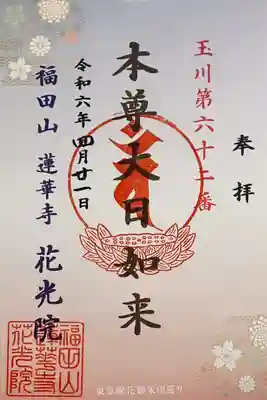 奉拝
玉川第六十二番
本尊大日如来
令和六年四月廿一日
福田山 蓮華寺 花光院
福田山
蓮華寺
花光院
東急線花御朱印巡り